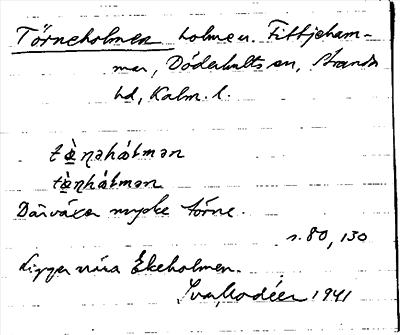 Törneholmen holme u. Fittjeham-
mar, Döderhults sn, Stranda
hd, Kalm. l.
tὰ̤ṇəhάlmən
tὰ̤ṇhάlmən
Där växer mycke törne.
s. 80, 130
Ligger nära Ekeholmen.
Iva Modéer 1941